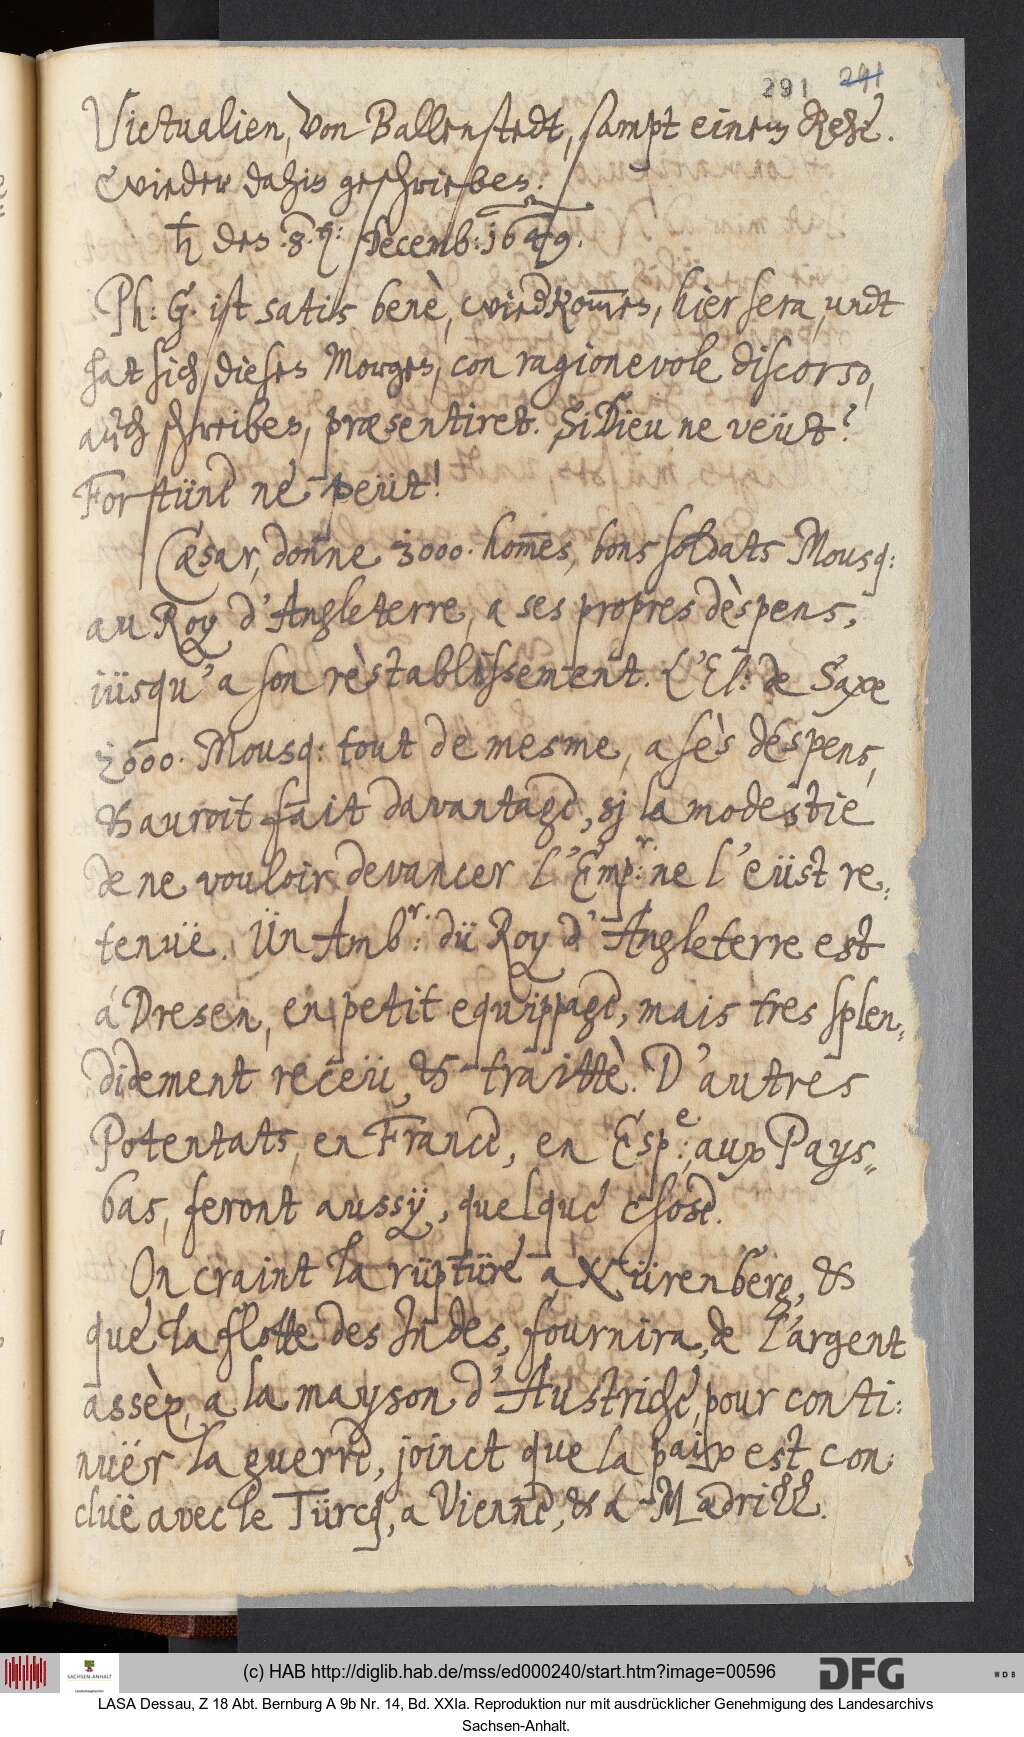 291 291
Victualien, von Ballenstedt, sampt einem Rehe.
wieder dahin geschrieben.
♄ den 8. ten: Decemb: 1649.
Ph: G. ist satis benè, wiedkommen, hiersera, undt
hat sich, dieses Morgen, con ragionevole discorso,
auch schreiben, præsentiret. Si Dieu ne veüt?
Fortüne ne peüt!
Cæsar, donne 3000. homes, bons soldats Mousq:
au Roy d'Angleterre, a ses propres dèspens,
iüsqu'a son rèstablissement. L'El: de Saxe
2000. Mousq: tout de mesme, a sès despens,
& auroit fait davantage, sj la modestie
de ne vouloir devancer l'Emp:r ne l'eüst re¬
tenuë. Ün Amb:r dü Roy d'Angleterre est
á Dresen, en petit equippage, mais tres splen¬
didement receü, & traittè. D'autres
Potentats, en France, en Esp:e, aux Pays¬
bas, feront aussÿ, quelque chose.
On craint la rüptüre a Nürenberg, &
que la flotte des Indes, fournira, de l'argent
assèz, a la mayson d'Austriche, pour conti¬
nuër la guerre, joinct que la paix est con¬
cluë avec le Türcq, a Vienne, & á Madrill.
(c) HAB http://diglib.hab.de/mss/ed000240/start.htm?image=00596
SACHSEN-ANHALT
DFG
WDB
LASA Dessau, Z 18 Abt. Bernburg A 9b Nr. 14, Bd. XXIa. Reproduktion nur mit ausdrücklicher Genehmigung des Landesarchivs
Sachsen-Anhalt.